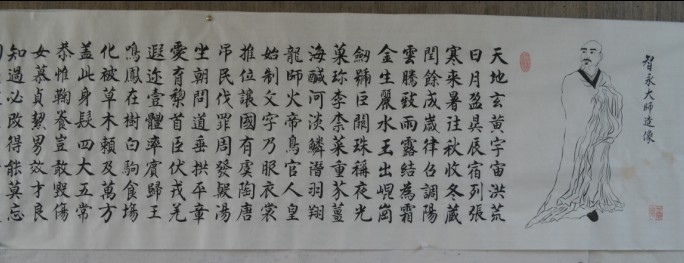 智永大師造像
天地玄黄宇宙洪荒
日月盈昃辰宿列張
寒來暑往秋收冬蔵
閏餘成歲律召調陽
雲騰致雨露結為霜
金生麗水玉出崐崗
劒號巨闕珠稱夜光
菓珎李柰菜重芥薑
海醎河淡鱗潛羽翔
龍師火帝鳥官人皇
始制文字乃服衣裳
推位讓國有虞陶唐
吊民伐罪周發殷湯
坐朝問道垂拱平章
愛育黎首臣伏戎羌
遐迩壹體率賓歸王
鳴鳳在樹白駒食場
化被草木賴及萬方
盖此身髮四大五常
恭惟鞠養豈敢毀傷
女慕貞絜男效才良
知過必改得能莫忘